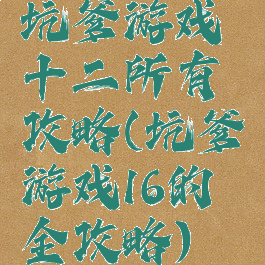 坑爹游戏
十二所有
攻略(坑爹
游戏16的
全攻略)